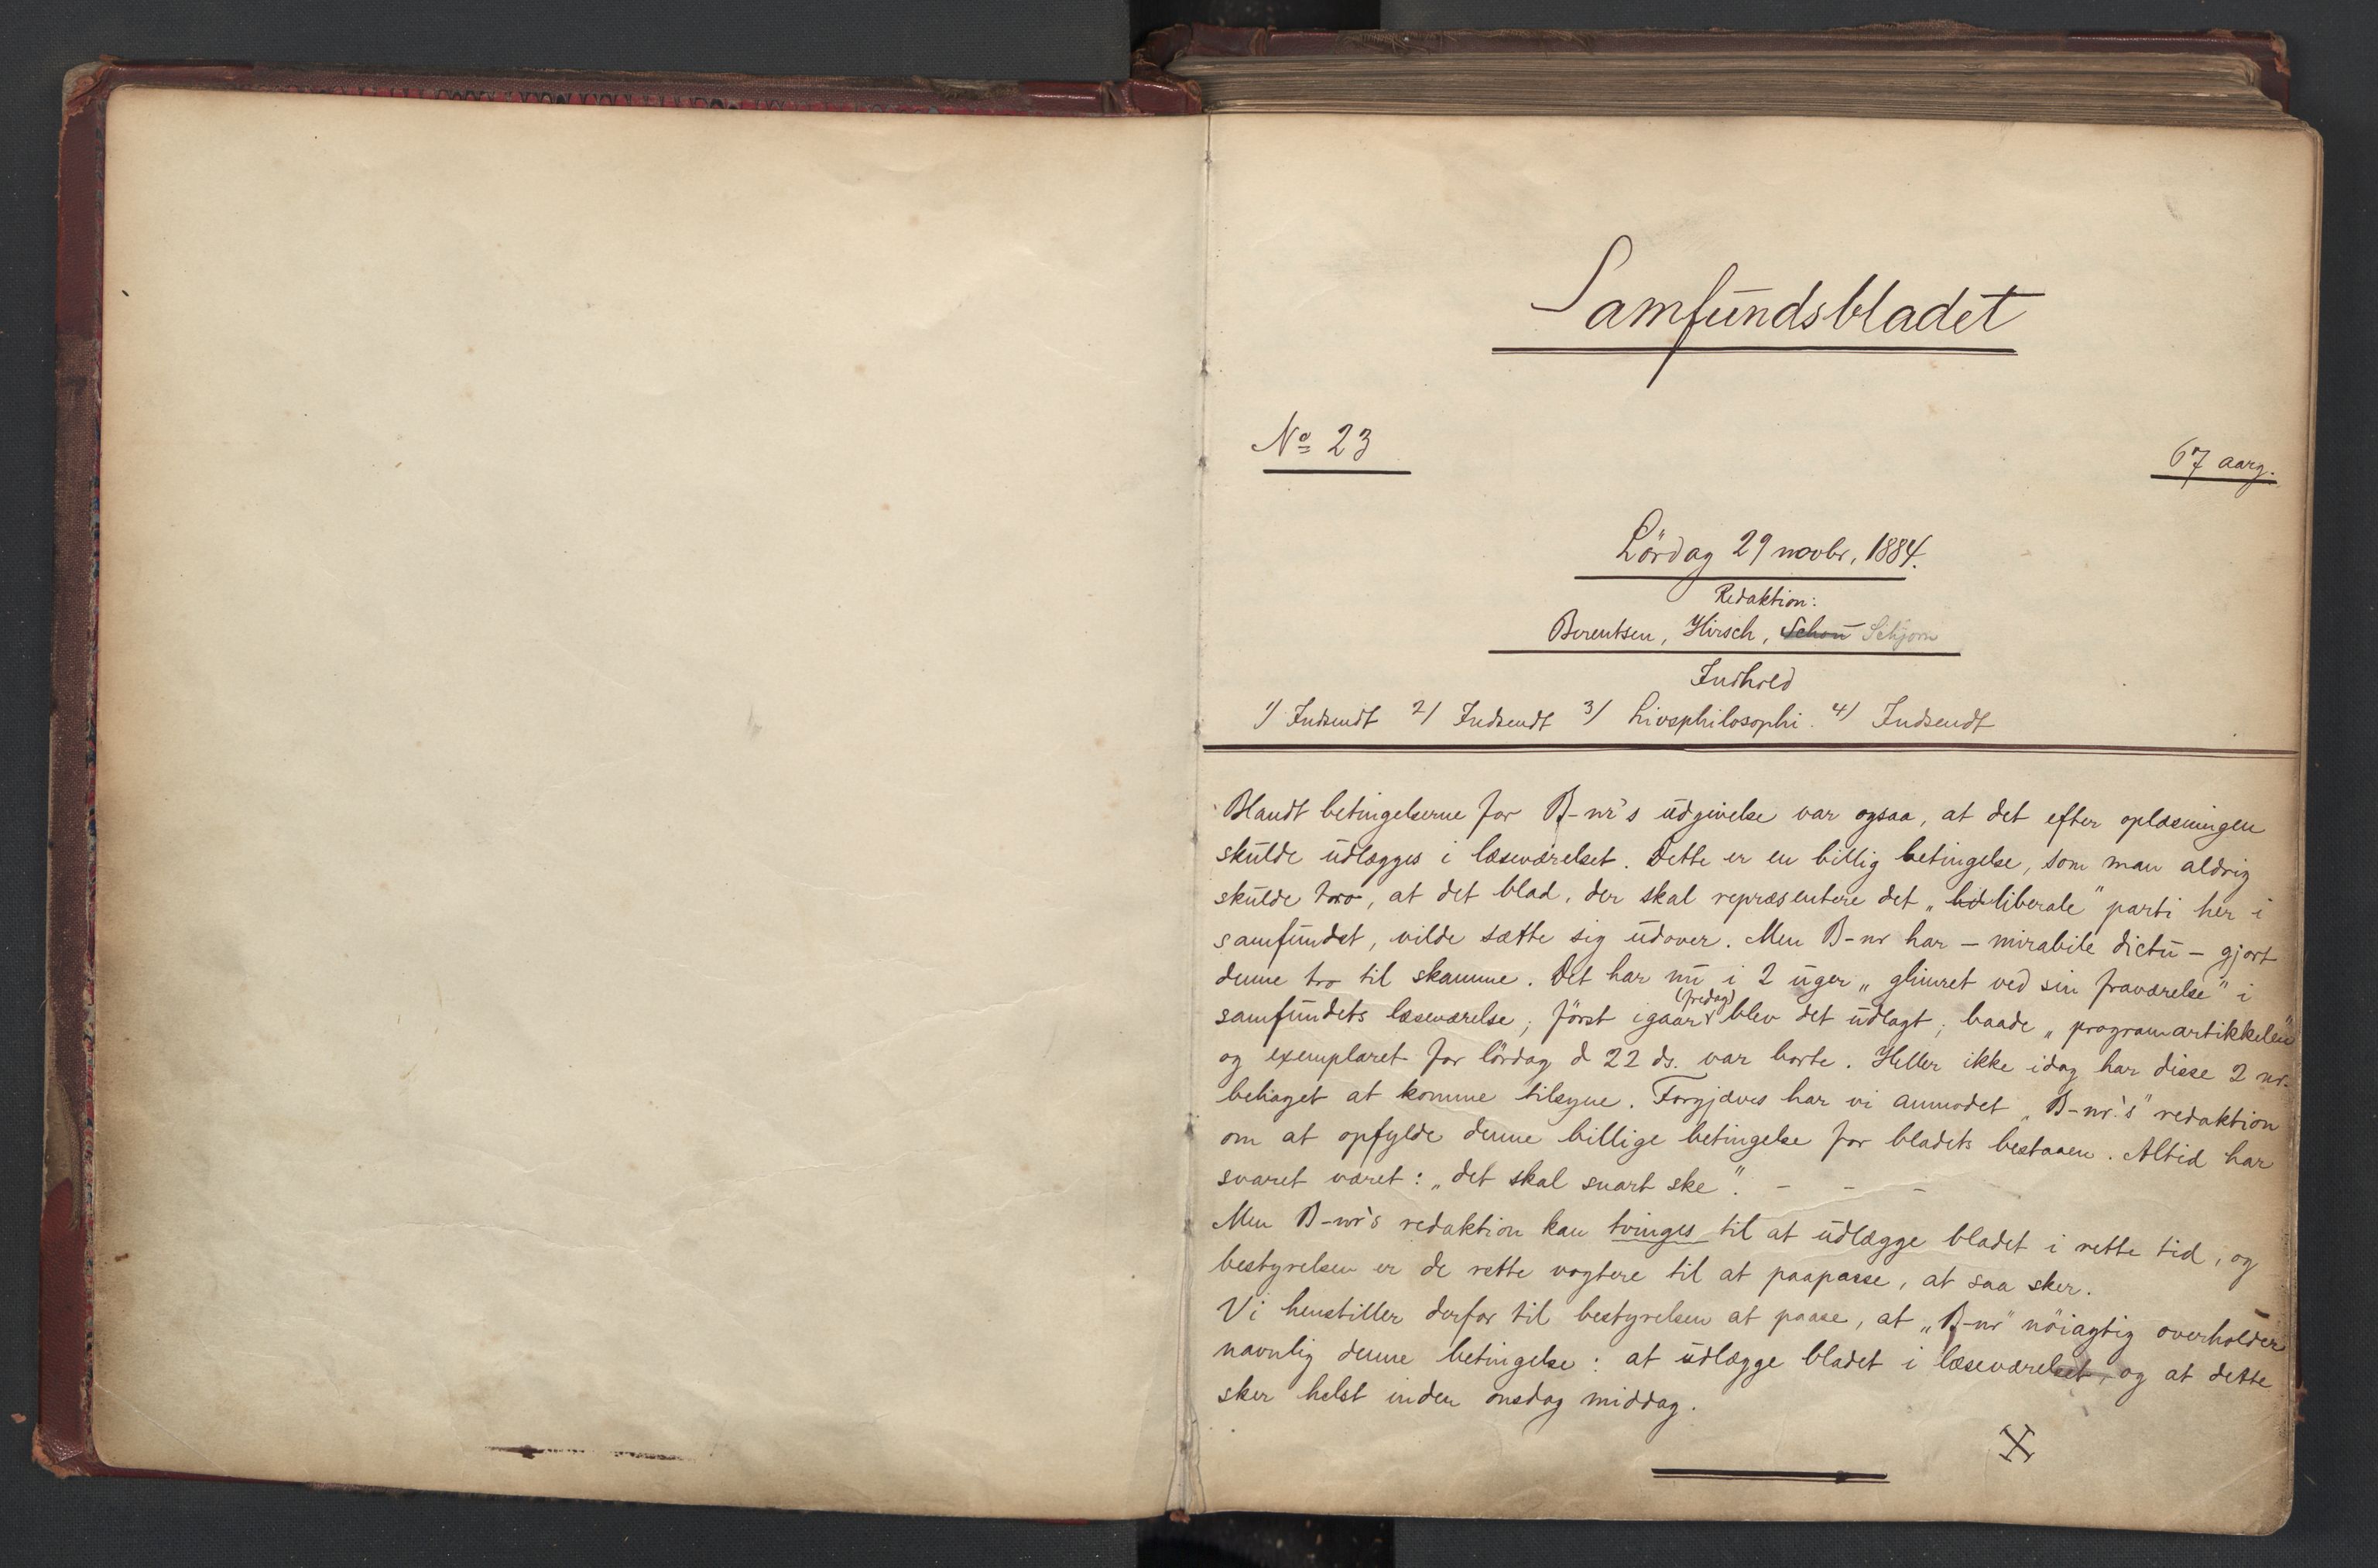 Samfundsbladet
No 23
67 aarg.
Lördag 29 novbr. 1884.
Redaktion:
Berentsen, Hirsch, Schou Schjorn
Indhold
1/ Indsendt 2/ Indsendt 3/ Livsphilosophi. 4/ Indsendt
Blandt betingelserne for B-nr's udgivelse var ogsaa, at det efter oplæsningen
skulde udlægges i læseværelset. Dette er en billig betingelse, som man aldrig
skulde tro, at det blad, der skal repræsentere det „liberale" parti her i
samfundet, vilde sætte sig udover. Men B-nr har - mirabile dictu - gjort
denne tro til skamme. Det har nu i 2 uger „glimret ved sin fraværelse" i
samfundets læseværelse; först igaar (fredag) blev det udlagt; baade „programartikkelen"
og exemplaret for lördag d 22 ds. var borte. Heller ikke idag har disse 2 nr.
behaget at komme tilsyne. Forgjæves har vi anmodet „B-nr.'s" redaktion
om at opfylde denne billige betingelse for bladets bestaaen. Altid har
svaret været: „det skal snart ske". - - -
Men B-nr's redaktion kan tvinges til at udlægge bladet i rette tid, og
bestyrelsen er de rette vogtere til at paapasse, at saa sker.
Vi henstiller derfor til bestyrelsen at paase, at „B-nr" nöiagtig overholder
navnlig denne betingelse: at udlægge bladet i læseværelset, og at dette
sker helst inden onsdag middag.
X